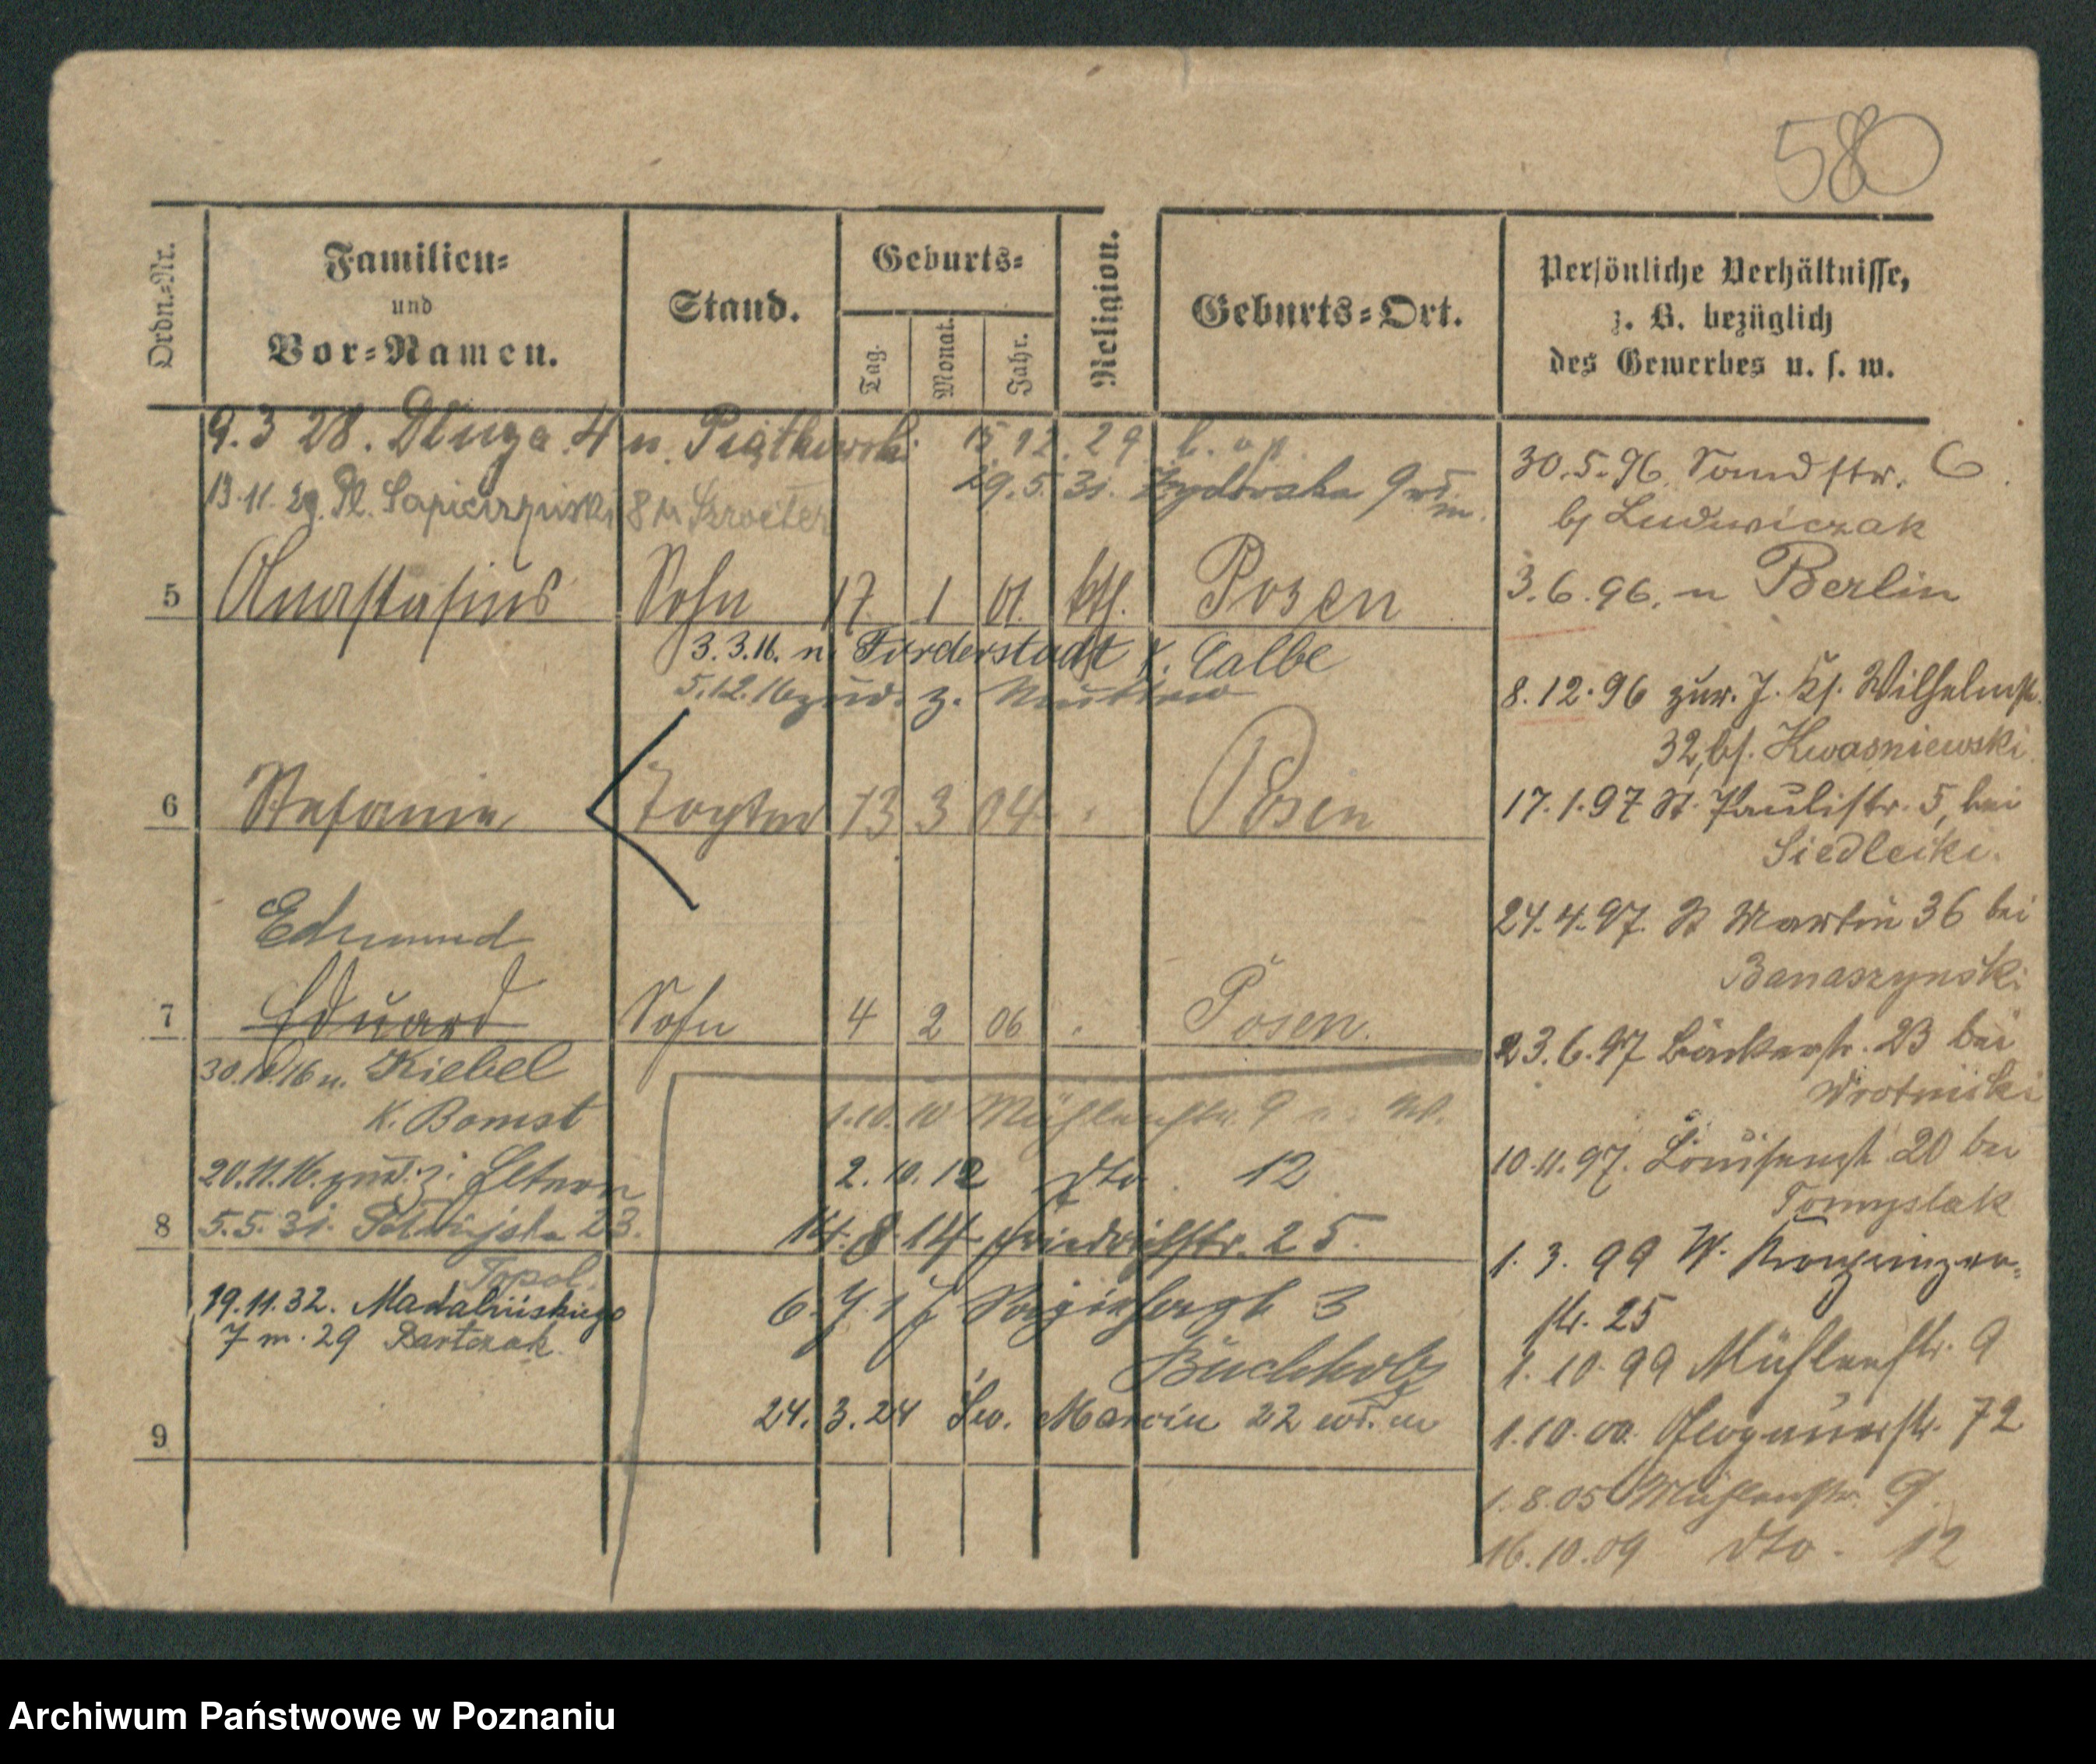 580
Ordn.-Nr.
Familien-
und
Vor-Namen.
Stand.
Geburts-
Tag.
Monat.
Jahr.
Religion.
Geburts-Ort.
Persönliche Verhältnisse,
z. B. bezüglich
des Gewerbes u. s. w.
9.3 28. Długa 4 u. Piątkowski 15.12.29
13.11.29. Pl. Sapieżyński 8 29.5.31. Żydowska 9 wł. m.
5 Anastasius Sohn 17 1 01 kth. Posen
3.3.16. n. Förderstadt K. Calbe
5.12.16 zurü. z. Mutter
6 Stefanie Tochter 13 3 04 Posen
Edmund
7 Eduard Sohn 4 2 06 Posen
30.10.16 n. Kiebel
K. Bomst
20.11.16. zurü. z. Eltern
8 5.5.31. 23.
Topol.
19.11.32. Madalińskiego
7 m. 29 Bartczak
9
1.10.10 Mühlenstr. 9
2.10.12 dto 12
14.8.14 Friedrichstr. 25.
6.7.17 3
Buchholz
24.3.24 Św. Marcin 22 wł. m
30.5.96. Sandstr. 6
bj Ludwiczak
3.6.96. n Berlin
8.12.96 zur. Wilhelmstr.
32, bj. Kwasniewski
17.1.97 St. Paulistr. 5, bei
Siedlecki.
24.4.97. St Martin 36 bei
Banaszynski
23.6.97 Bäckerstr. 23 bei
Wrotniski
10.11.97. Louisenstr 20 bei
Tomyslak
1.3.99 W. Kronprinzen-
str. 25
1.10.99 Mühlenstr. 9
1.10.00. Glogauerstr. 72
1.8.05 Mühlenstr. 9.
16.10.09 dto. 12
Archiwum Państwowe w Poznaniu